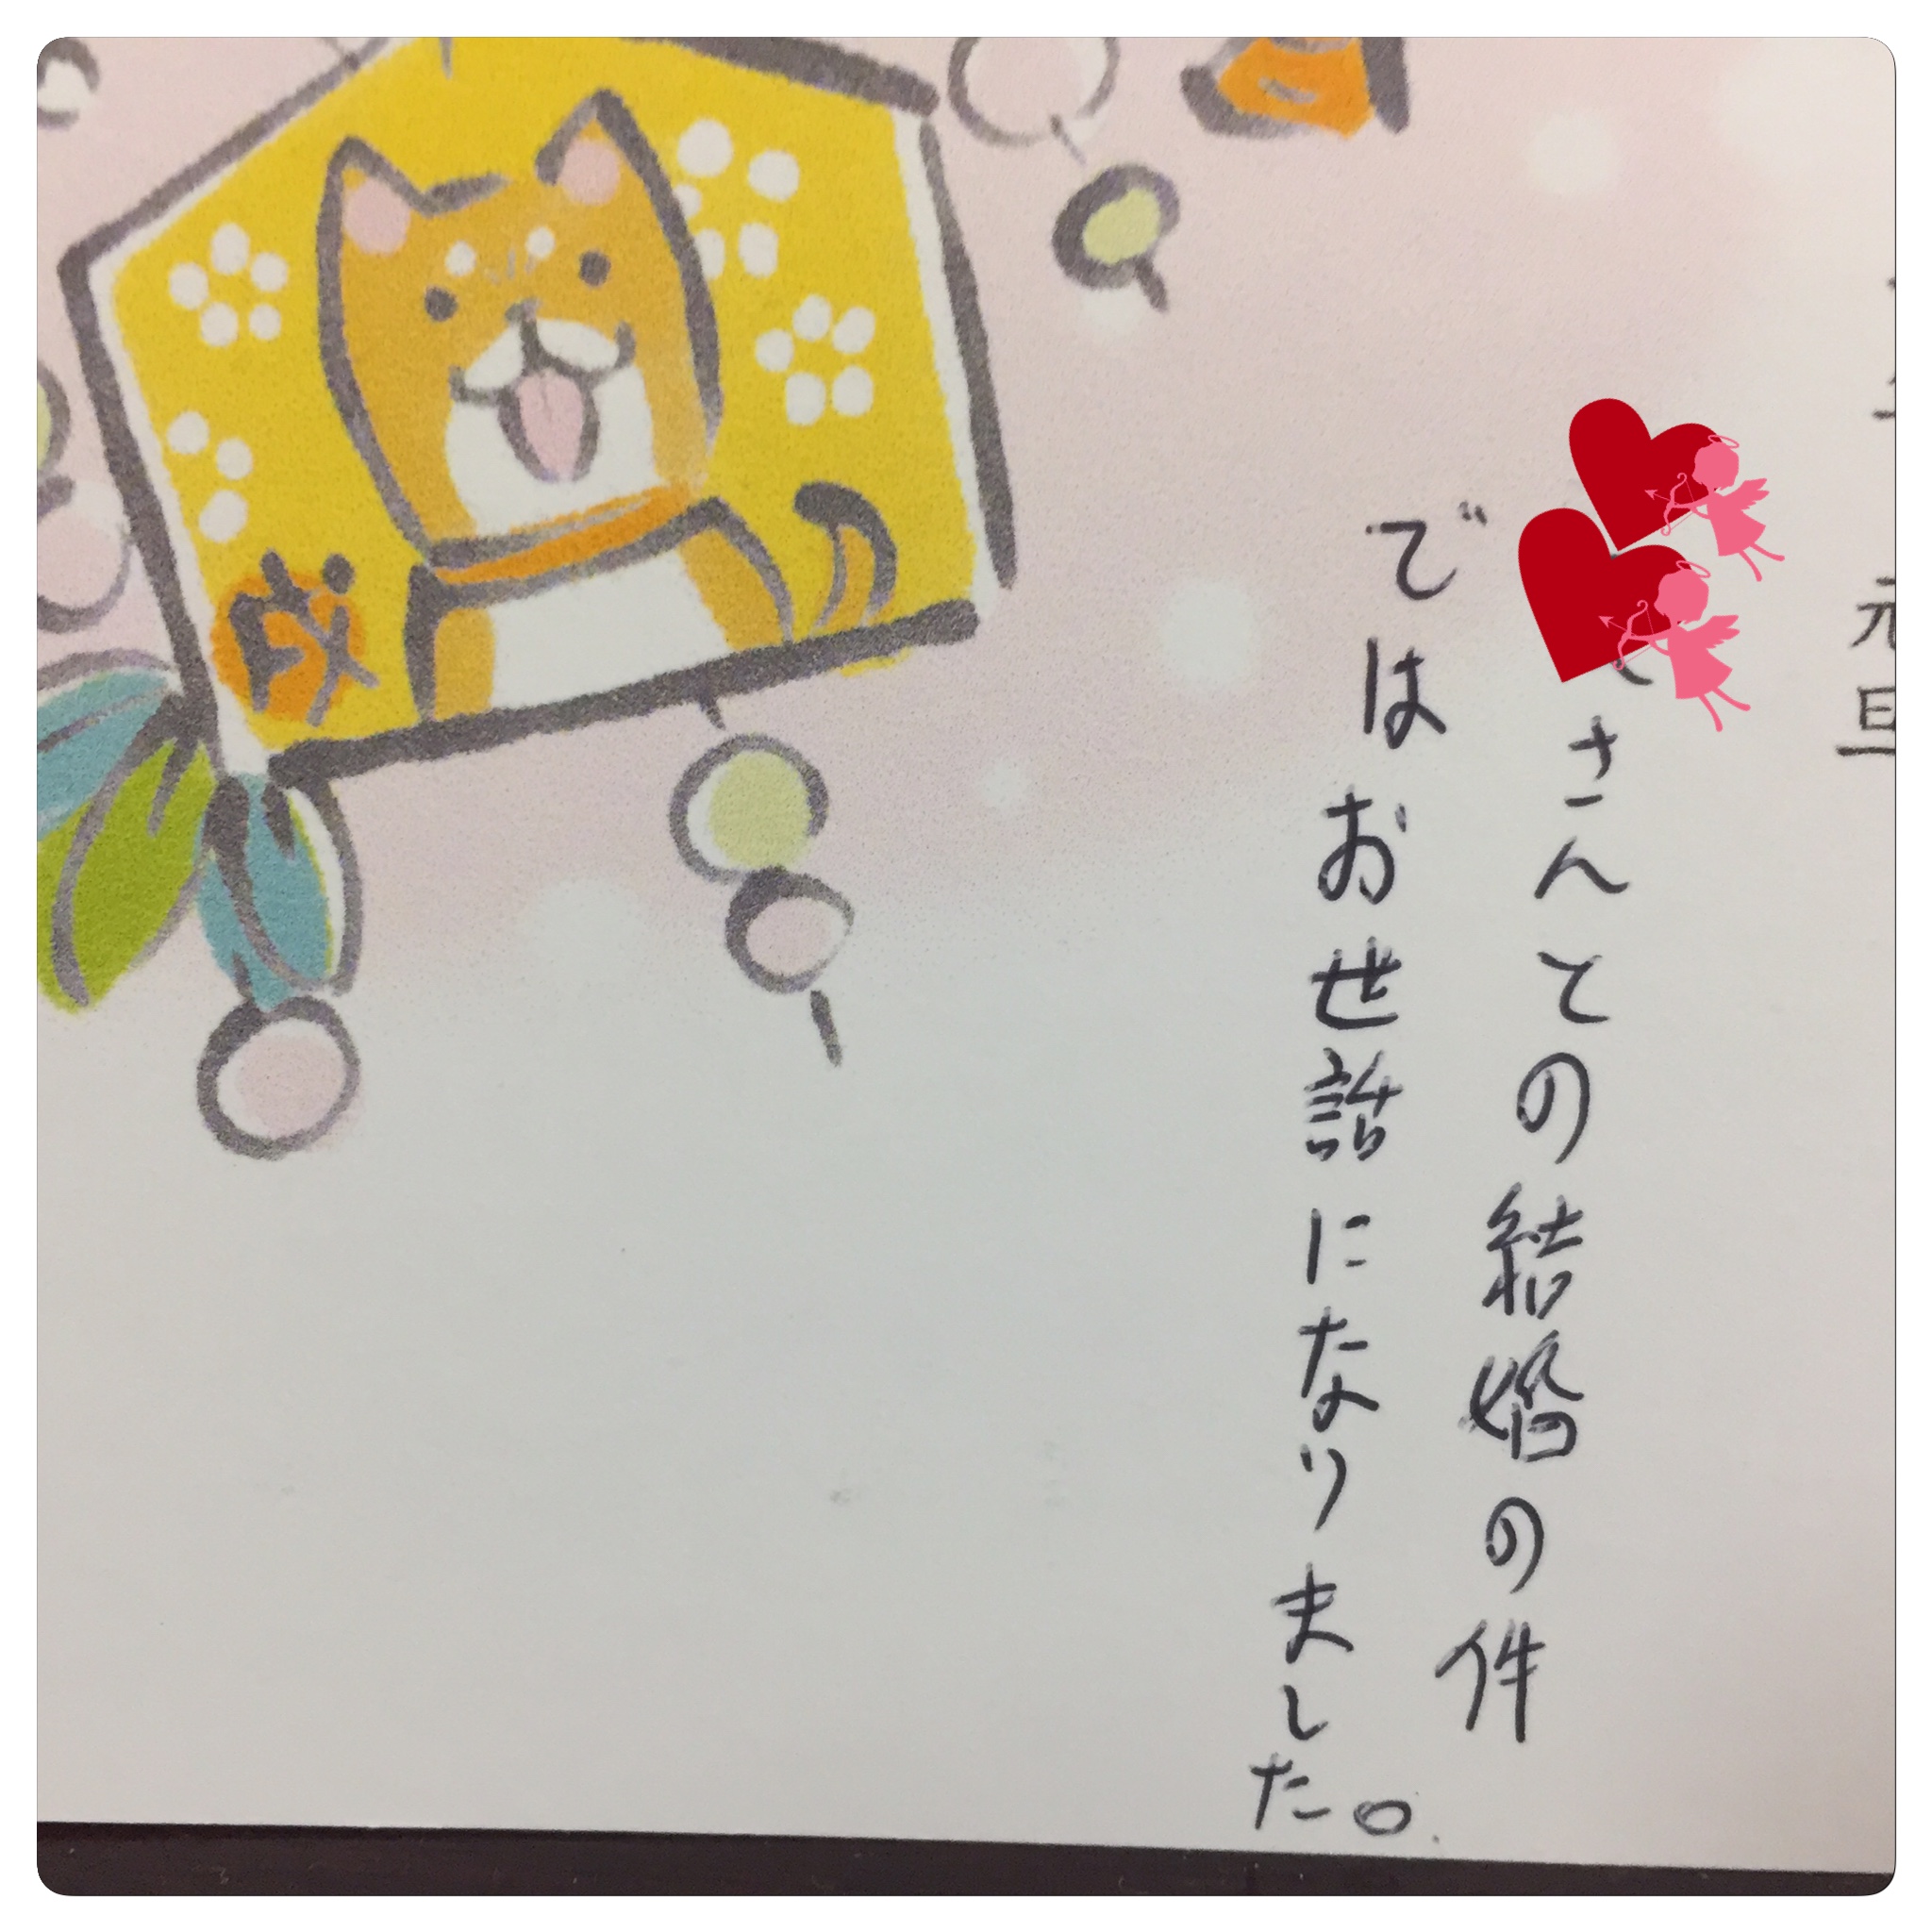 元旦
さんとの結婚の件
ではお世話になりました。
戌